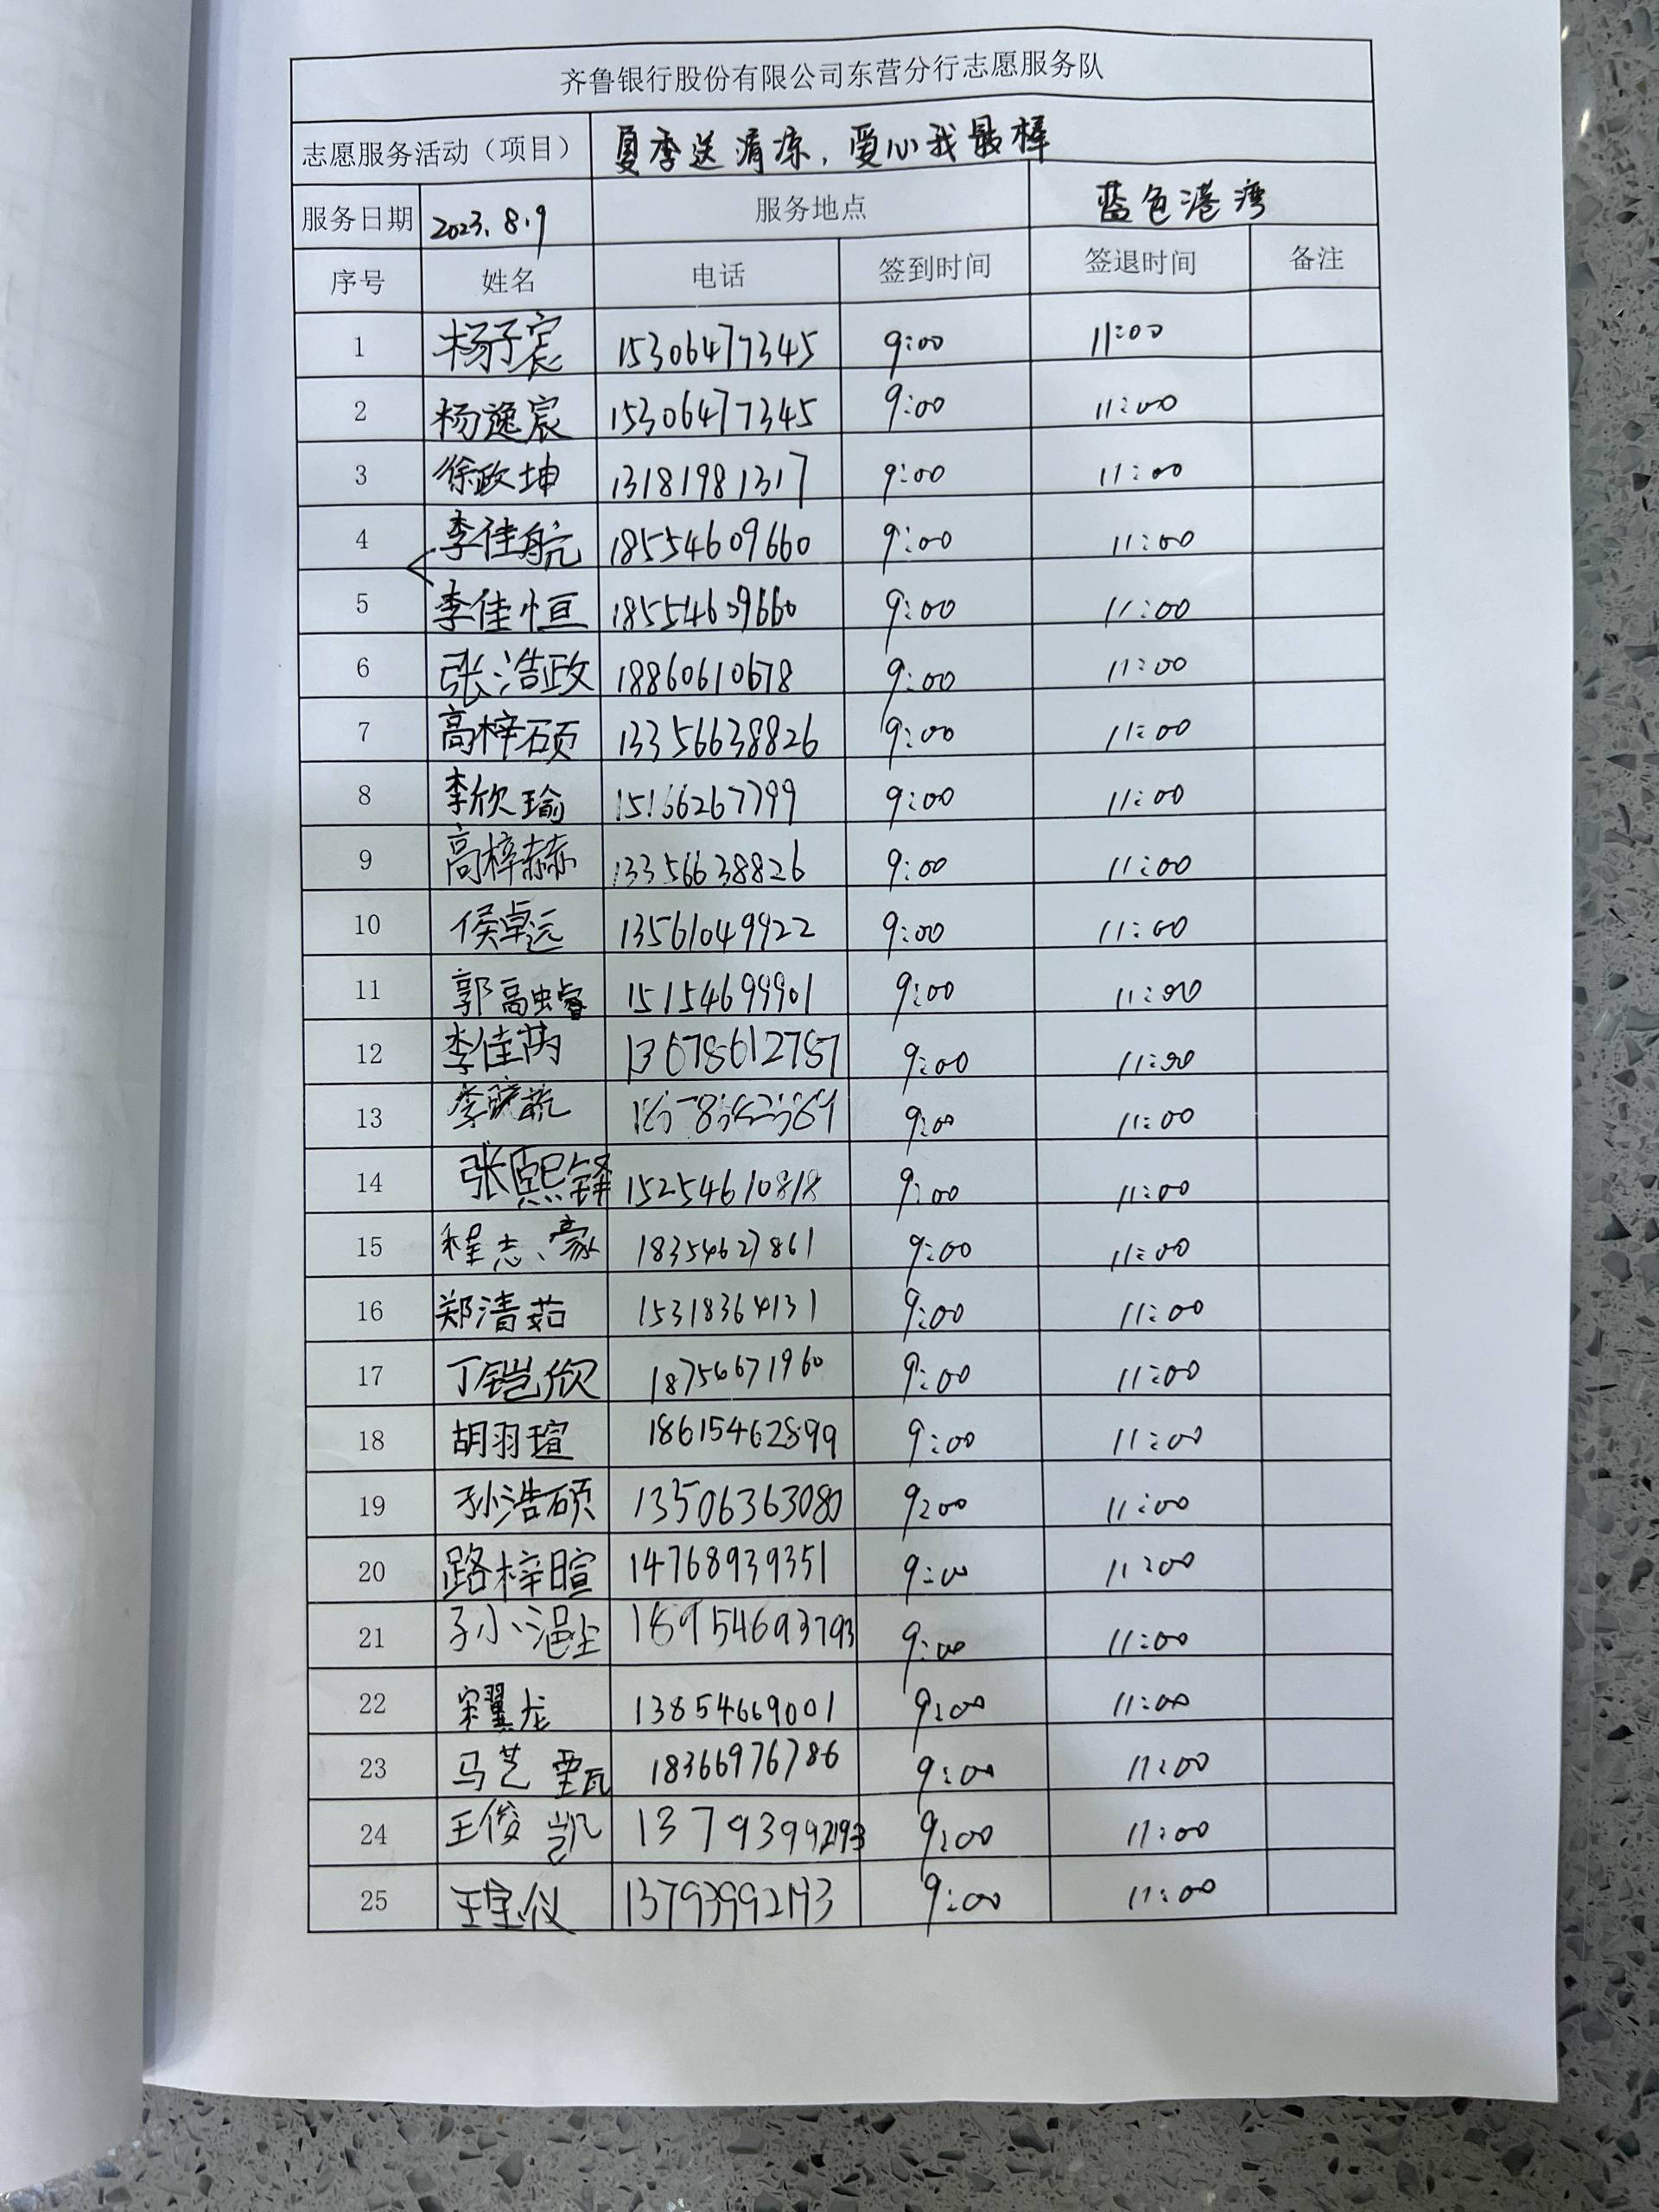 齐鲁银行股份有限公司东营分行志愿服务队
志愿服务活动（项目） 夏季送清凉，爱心我最棒
服务日期 2023.8.9 服务地点 蓝色港湾
序号 姓名 电话 签到时间 签退时间 备注
1 杨子宸 15306477345 9:00 11:00
2 杨逸宸 15306477345 9:00 11:00
3 徐政坤 13181981317 9:00 11:00
4 李佳航 18554609660 9:00 11:00
5 李佳恒 18554609660 9:00 11:00
6 张浩政 18860610678 9:00 11:00
7 高梓硕 13356638826 9:00 11:00
8 李欣瑜 15166267799 9:00 11:00
9 高梓赫 13356638826 9:00 11:00
10 侯卓远 13561049922 9:00 11:00
11 郭高 15154699901 9:00 11:00
12 李佳芮 13678612787 9:00 11:00
13 9:00 11:00
14 张熙锋 15254610818 9:00 11:00
15 程志豪 18354627861 9:00 11:00
16 郑清茹 15318364131 9:00 11:00
17 丁铠欣 18756671960 9:00 11:00
18 胡羽瑄 18615462899 9:00 11:00
19 孙浩硕 13506363080 9:00 11:00
20 路梓暄 14768939351 9:00 11:00
21 9:00 11:00
22 宋翼龙 13854669001 9:00 11:00
23 马艺甄 18366976786 9:00 11:00
24 王俊凯 13793992193 9:00 11:00
25 王宝仪 13793992193 9:00 11:00